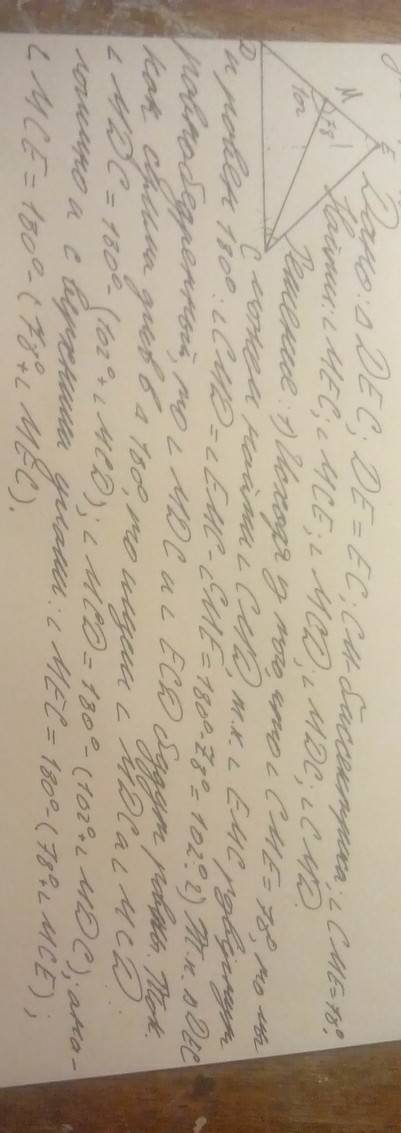 E
M
78
102
D
C
Дано: △ DEC; DE = EC; CM биссектриса; ∠ CME = 78°;
Найти: ∠ MEC; ∠ MCE; ∠ MCD; ∠ MDC; ∠ CMD
Решение: 1) Исходя из того, что ∠ CME = 78°, то мы
можем найти ∠ CMD, т.к. ∠ EMC
и равен 180°: ∠ CMD = ∠ EMC - ∠ CME = 180° - 78° = 102°. 2) Т.к. △ DEC
равнобедренный, то ∠ MDC и ∠ ECD будут равны. Так
как сумма углов в △ 180°, то ищем ∠ MDC и ∠ MCD
∠ MDC = 180° - (102° + ∠ MCD); ∠ MCD = 180° - (102° + ∠ MDC); ана-
логично и с верхними углами: ∠ MEC = 180° - (78° + ∠ MCE);
∠ MCE = 180° - (78° + ∠ MEC).